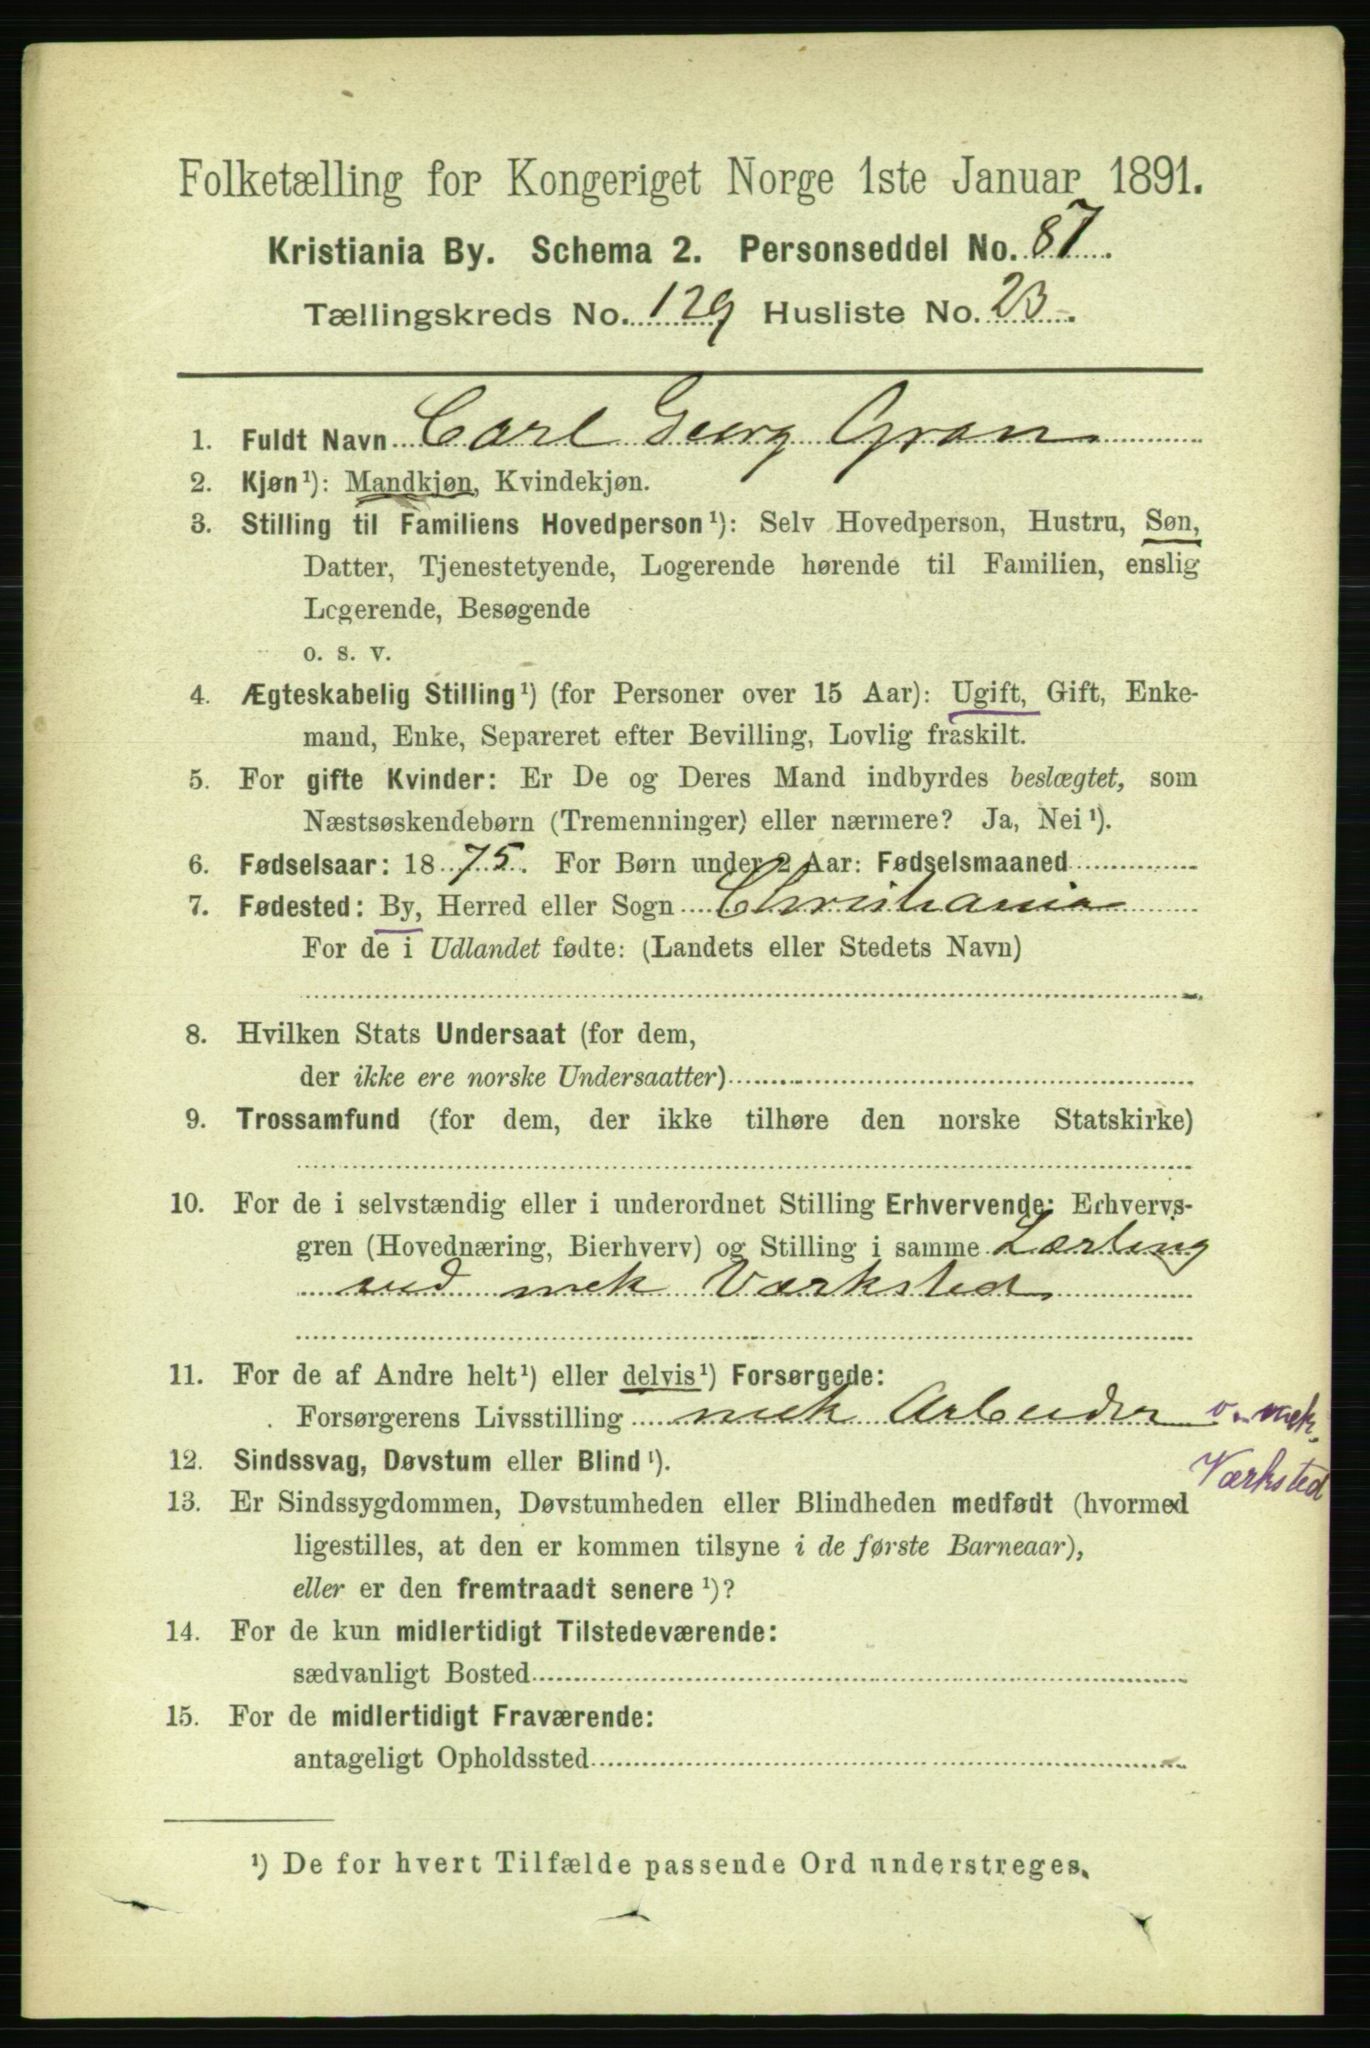 Folketælling for Kongeriget Norge 1ste Januar 1891.
Kristiania By. Schema 2. Personseddel No. 87.
Tællingskreds No. 129 Husliste No. 23.
1. Fuldt Navn Carl Georg Gran
2. Kjøn¹): Mandkjøn, Kvindekjøn.
3. Stilling til Familiens Hovedperson¹): Selv Hovedperson, Hustru, Søn,
Datter, Tjenestetyende, Logerende hørende til Familien, enslig
Logerende, Besøgende
o. s. v.
4. Ægteskabelig Stilling¹) (for Personer over 15 Aar): Ugift, Gift, Enke-
mand, Enke, Separeret efter Bevilling, Lovlig fraskilt.
5. For gifte Kvinder: Er De og Deres Mand indbyrdes beslægtet, som
Næstsøskendebørn (Tremenninger) eller nærmere? Ja, Nei¹).
6. Fødselsaar: 1875. For Børn under 2 Aar: Fødselsmaaned
7. Fødested: By, Herred eller Sogn Christiania
For de i Udlandet fødte: (Landets eller Stedets Navn)
8. Hvilken Stats Undersaat (for dem,
der ikke ere norske Undersaatter)
9. Trossamfund (for dem, der ikke tilhøre den norske Statskirke)
10. For de i selvstændig eller i underordnet Stilling Erhvervende: Erhvervs-
gren (Hovednæring, Bierhverv) og Stilling i samme Lærling
ved mek Værksted
11. For de af Andre helt¹) eller delvis¹) Forsørgede:
Forsørgerens Livsstilling mek Arbeider v. mek.
Værksted
12. Sindssvag, Døvstum eller Blind¹).
13. Er Sindssygdommen, Døvstumheden eller Blindheden medfødt (hvormed
ligestilles, at den er kommen tilsyne i de første Barneaar),
eller er den fremtraadt senere¹)?
14. For de kun midlertidigt Tilstedeværende:
sædvanligt Bosted
15. For de midlertidigt Fraværende:
antageligt Opholdssted
¹) De for hvert Tilfælde passende Ord understreges.